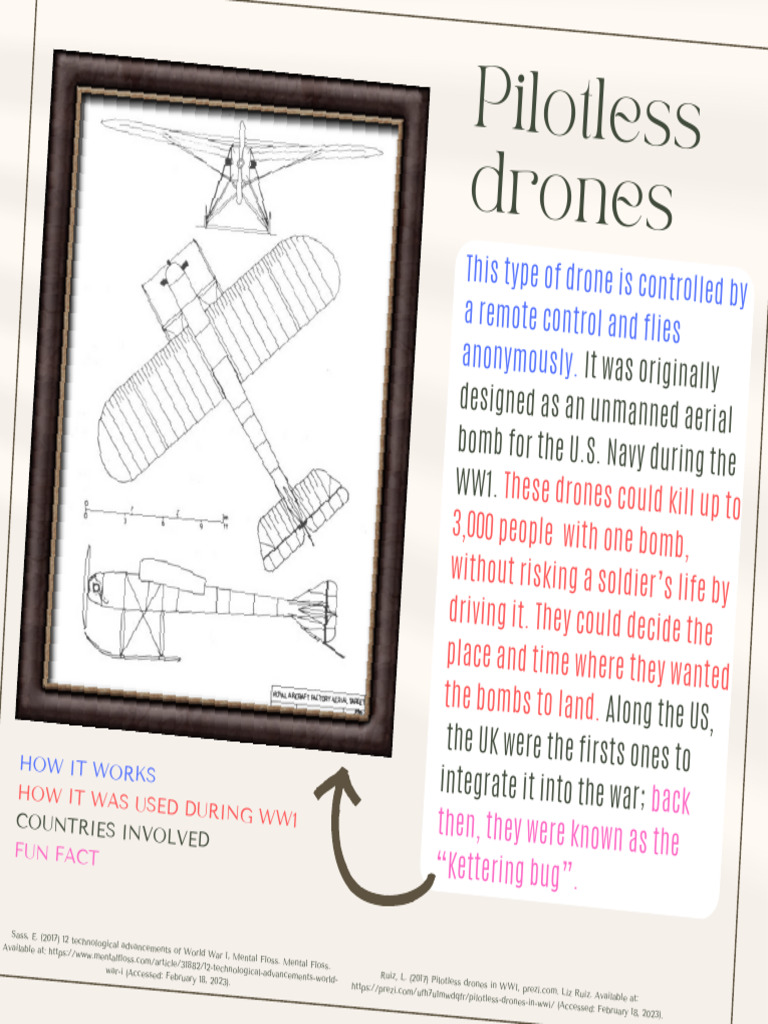 Pilotless
drones
This type of drone is controlled by
a remote control and flies
anonymously. It was originally
designed as an unmanned aerial
bomb for the U.S. Navy during the
WW1. These drones could kill up to
3,000 people with one bomb,
without risking a soldier's life by
driving it. They could decide the
place and time where they wanted
the bombs to land. Along the US,
the UK were the firsts ones to
integrate it into the war; back
then, they were known as the
“Kettering bug”.
ROYAL AIRCRAFT FACTORY AERIAL TARGET
HOW IT WORKS
HOW IT WAS USED DURING WW1
COUNTRIES INVOLVED
FUN FACT
Sass, E. (2017) 12 technological advancements of World War I, Mental Floss. Mental Floss.
Available at: https://www.mentalfloss.com/article/31882/12-technological-advancements-world-
war-i (Accessed: February 18, 2023).
Ruiz, L. (2017) Pilotless drones in WW1, prezi.com. Liz Ruiz. Available at:
https://prezi.com/ufh7u1mwdqfr/pilotless-drones-in-wwi/ (Accessed: February 18, 2023).